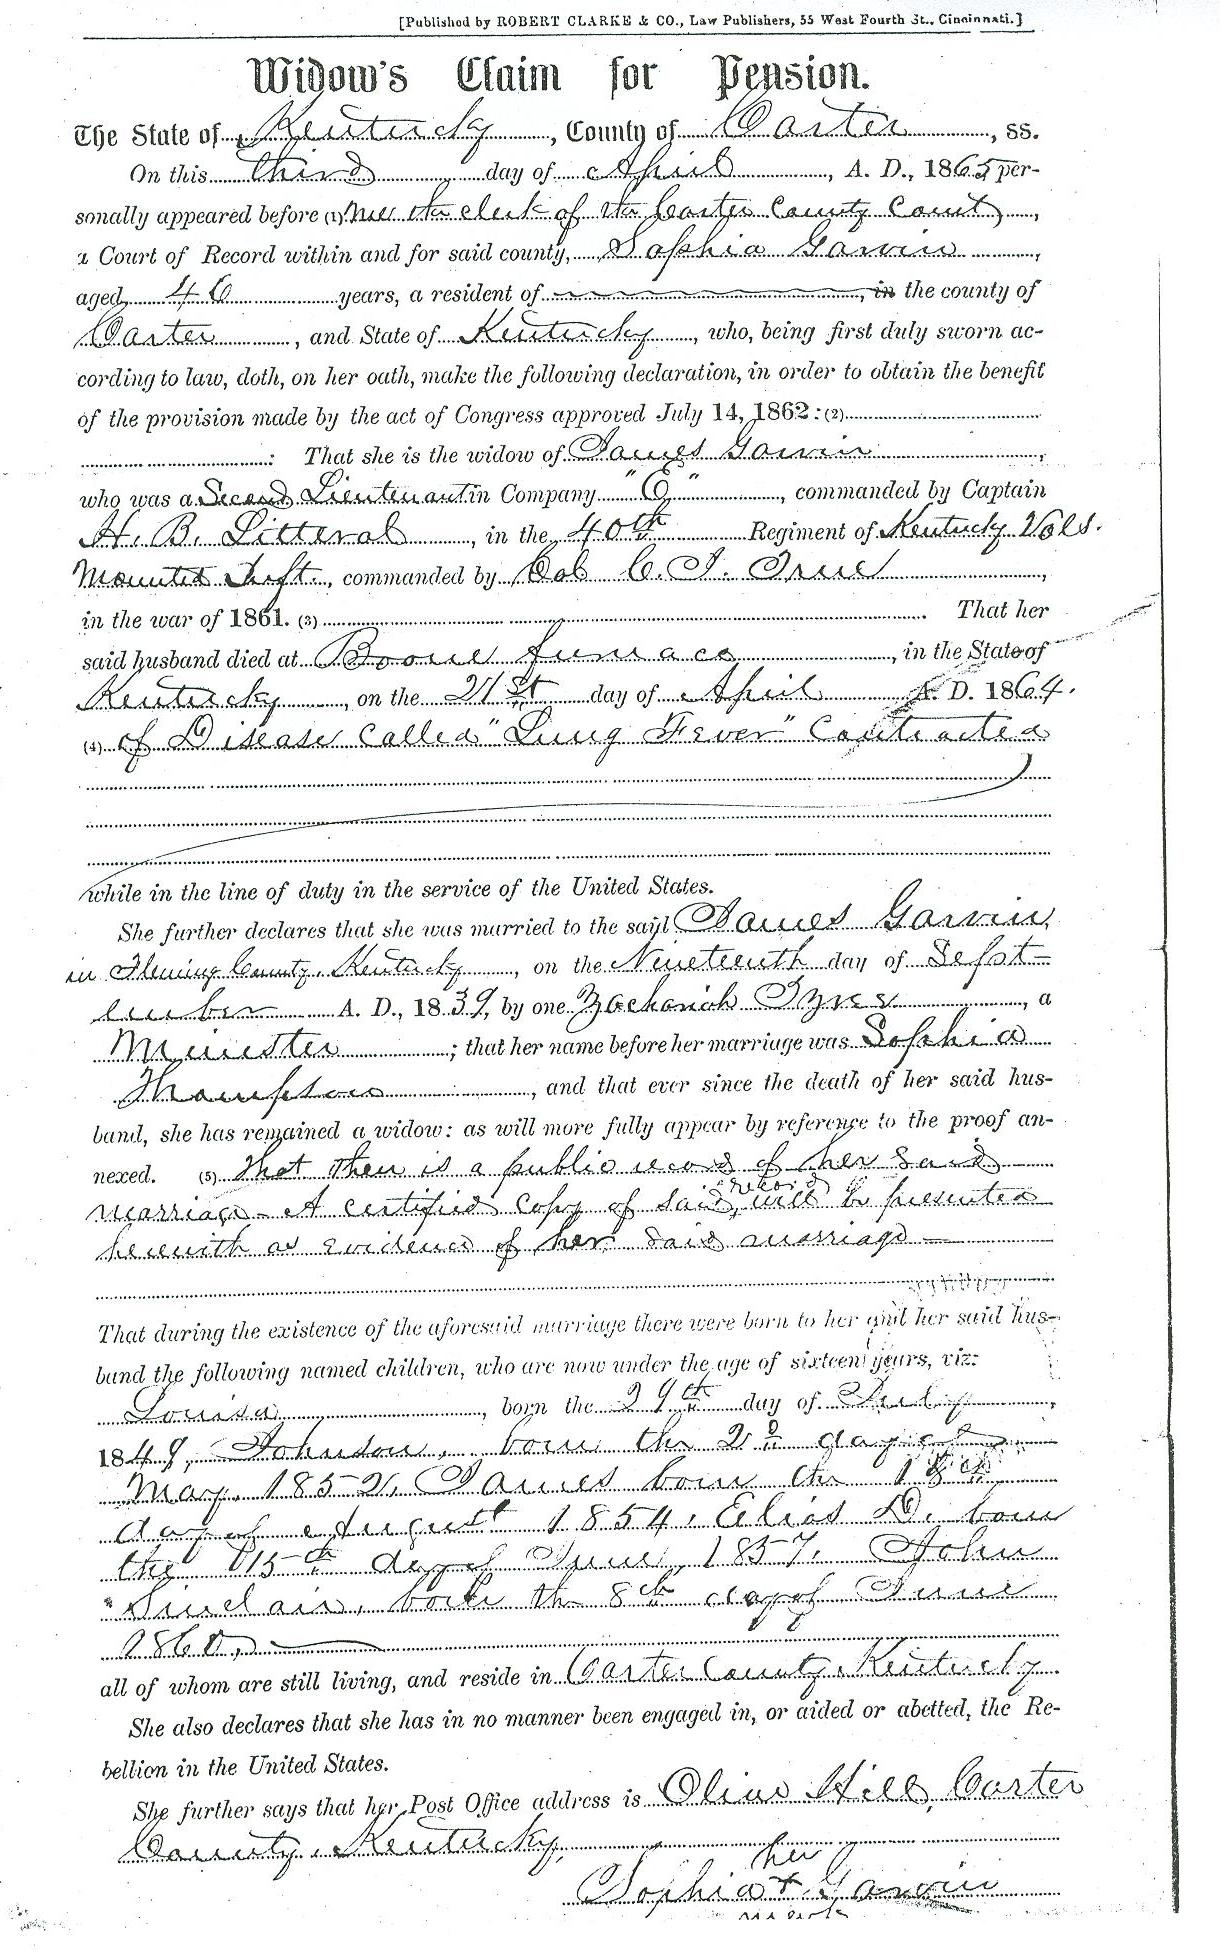 [Published by ROBERT CLARKE & CO., Law Publishers, 55 West Fourth St., Cincinnati.]
Widow's Claim for Pension.
The State of Kentucky, County of Carter, ss.
On this third day of April, A. D., 1865 per-
sonally appeared before (1) me the clerk of the Carter County Court,
a Court of Record within and for said county, Sophia Garvin,
aged 46 years, a resident of , in the county of
Carter, and State of Kentucky, who, being first duly sworn ac-
cording to law, doth, on her oath, make the following declaration, in order to obtain the benefit
of the provision made by the act of Congress approved July 14, 1862: (2)
: That she is the widow of James Garvin,
who was a Second Lieutenant in Company "E", commanded by Captain
H. B. Litteral, in the 40th Regiment of Kentucky Vols.
Mounted Inft., commanded by Col C. J. True,
in the war of 1861. (3) . That her
said husband died at Boone furnace, in the State of
Kentucky, on the 21st day of April A. D. 1864.
(4) of Disease called "Lung Fever" Contracted
while in the line of duty in the service of the United States.
She further declares that she was married to the said James Garvin,
in Fleming County, Kentucky, on the Nineteenth day of Sept-
ember A. D., 1839, by one Zachariah , a
Minister; that her name before her marriage was Sophia
Thompson, and that ever since the death of her said hus-
band, she has remained a widow: as will more fully appear by reference to the proof an-
nexed. (5) That there is a public record of her said
marriage - A certified copy of said record will be presented
herewith as evidence of her said marriage -
That during the existence of the aforesaid marriage there were born to her and her said hus-
band the following named children, who are now under the age of sixteen years, viz:
Louisa, born the 29th day of July,
1849, Johnson, born the 2d day of
May, 1852, James born the 18th
day of August 1854, Elias D. born
the 15th day of June, 1857. John
Sinclair, born the 8th day of June
1860,
all of whom are still living, and reside in Carter County, Kentucky.
She also declares that she has in no manner been engaged in, or aided or abetted, the Re-
bellion in the United States.
She further says that her Post Office address is Olive Hill, Carter
County, Kentucky,
her
Sophia x Garvin
mark